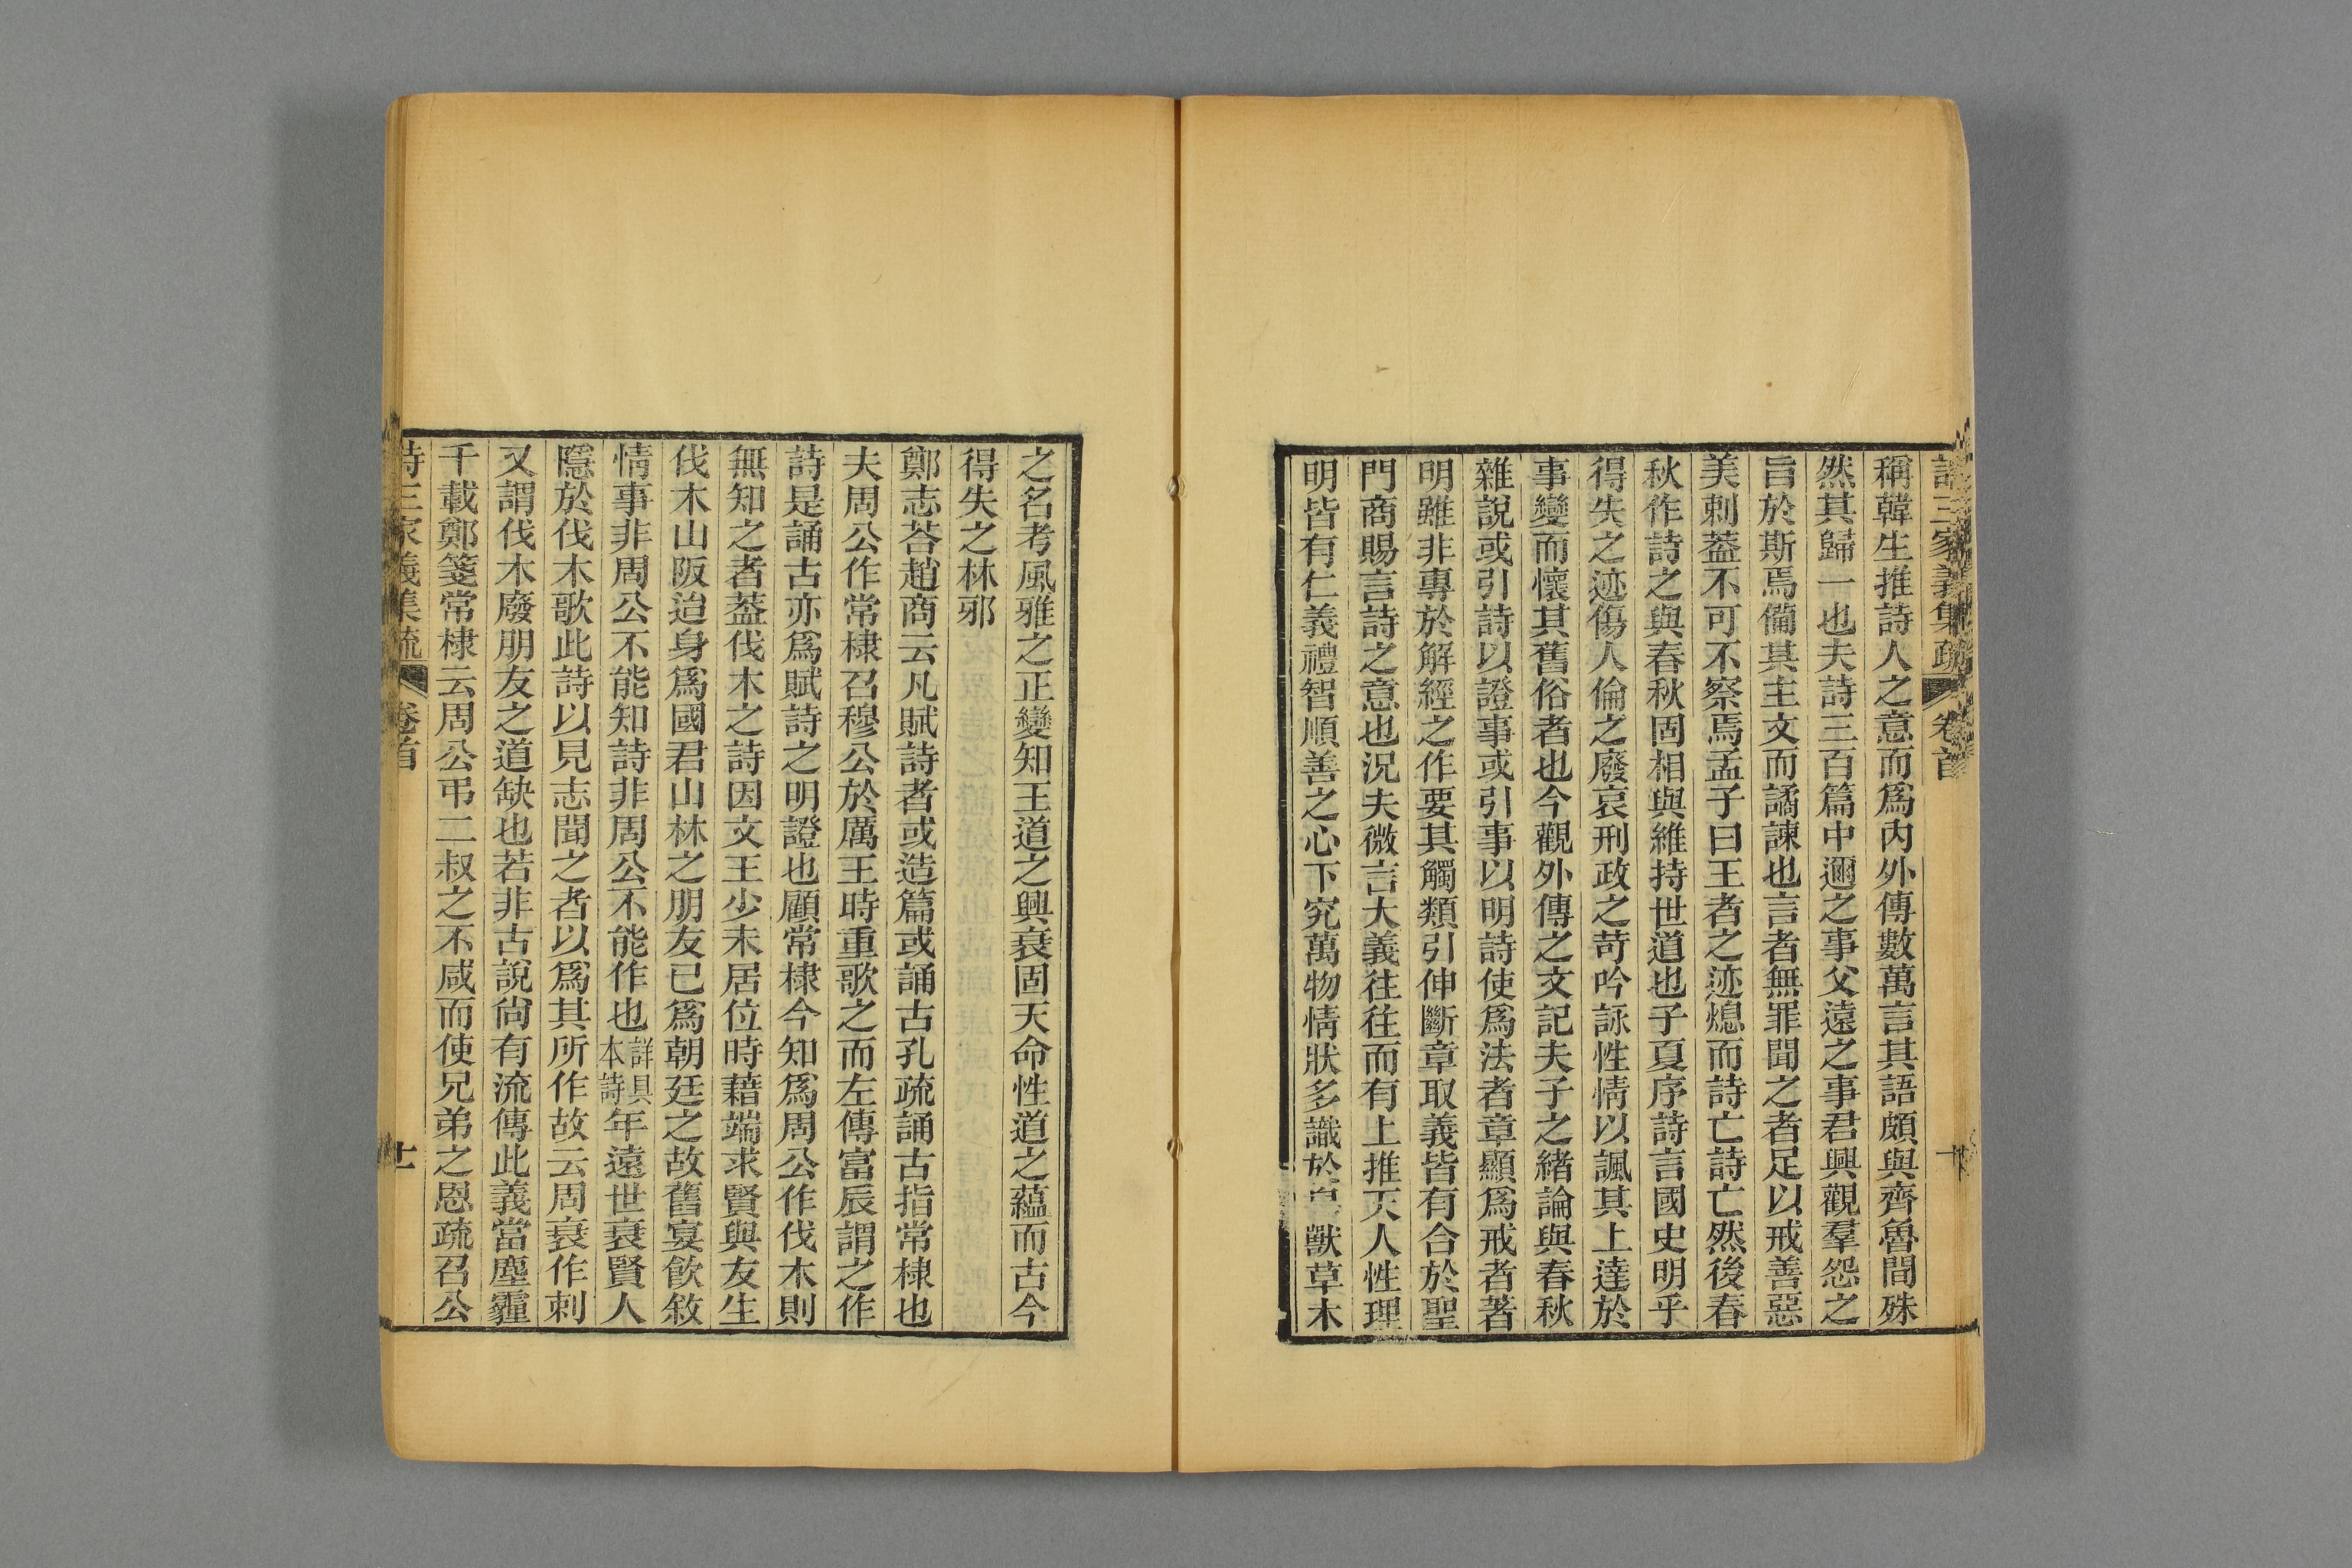 詩三家義集疏 卷首 十
稱韓生推詩人之意而爲內外傳數萬言其語頗與齊魯間殊
然其歸一也夫詩三百篇中邇之事父遠之事君興觀羣怨之
旨於斯焉備其主文而譎諫也言者無罪聞之者足以戒善惡
美刺葢不可不察焉孟子曰王者之迹熄而詩亡詩亡然後春
秋作詩之與春秋固相與維持世道也子夏序詩言國史明乎
得失之迹傷人倫之廢哀刑政之苛吟詠性情以諷其上達於
事變而懷其舊俗者也今觀外傳之文記夫子之緒論與春秋
雜說或引詩以證事或引事以明詩使爲法者章顯爲戒者著
明雖非專於解經之作要其觸類引伸斷章取義皆有合於聖
門商賜言詩之意也況夫微言大義往往而有上推天人性理
明皆有仁義禮智順善之心下究萬物情狀多識於獸草木
之名考風雅之正變知王道之興衰固天命性道之蘊而古今
得失之林邪
鄭志荅趙商云凡賦詩者或造篇或誦古孔疏誦古指常棣也
夫周公作常棣召穆公於厲王時重歌之而左傳富辰謂之作
詩是誦古亦爲賦詩之明證也顧常棣今知爲周公作伐木則
無知之者葢伐木之詩因文王少未居位時藉端求賢與友生
伐木山阪迨身爲國君山林之朋友已爲朝廷之故舊宴飮敘
情事非周公不能知詩非周公不能作也詳具本詩年遠世衰賢人
隱於伐木歌此詩以見志聞之者以爲其所作故云周衰作刺
又謂伐木廢朋友之道缺也若非古說尙有流傳此義當塵霾
千載鄭箋常棣云周公弔二叔之不咸而使兄弟之恩疏召公
詩三家義集疏 卷首 十一